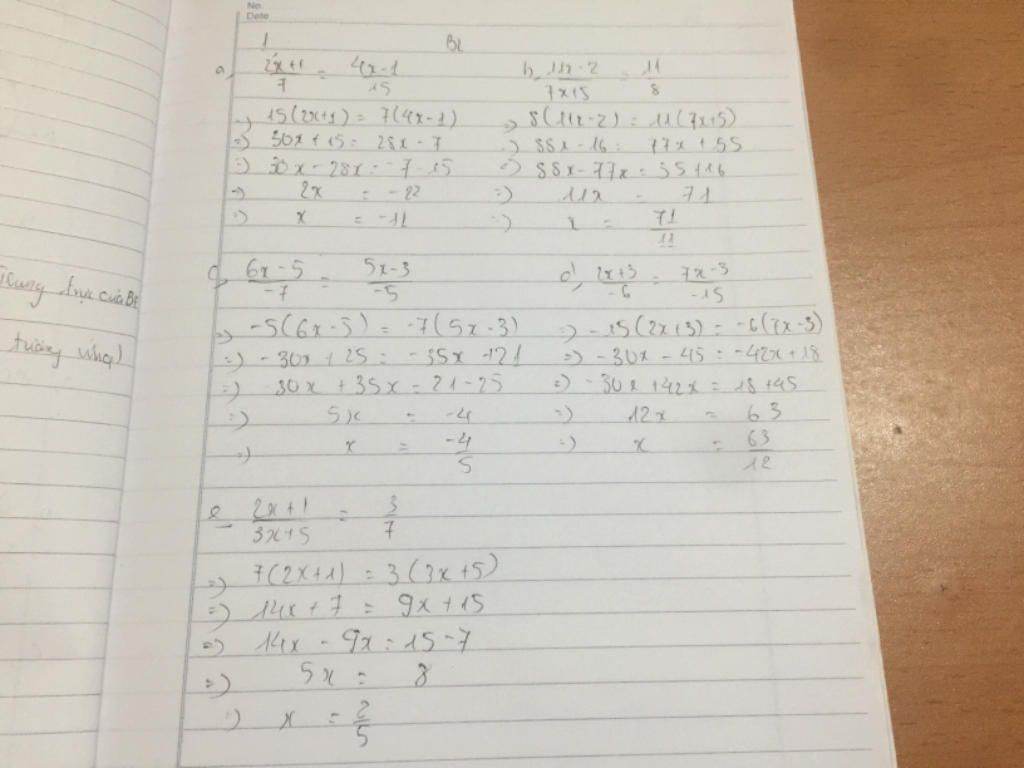 No.
Date
1 BL
a, 2x+1/7 = 4x-1/15 b, 11x-2/7x+5 = 11/8
=) 15(2x+1) = 7(4x-1) =) 8(11x-2) = 11(7x+5)
=) 30x+15 = 28x-7 =) 88x-16 = 77x+55
=) 30x-28x = -7-15 =) 88x-77x = 55+16
=) 2x = -22 =) 11x = 71
=) x = -11 =) x = 71/11
c, 6x-5/-7 = 5x-3/-5 d, 2x+3/-6 = 7x-3/-15
=) -5(6x-5) = -7(5x-3) =) -15(2x+3) = -6(7x-3)
=) -30x+25 = -35x+21 =) -30x-45 = -42x+18
=) -30x+35x = 21-25 =) -30x+42x = 18+45
=) 5x = -4 =) 12x = 63
=) x = -4/5 =) x = 63/12
e 2x+1/3x+5 = 3/7
=) 7(2x+1) = 3(3x+5)
=) 14x+7 = 9x+15
=) 14x-9x = 15-7
=) 5x = 8
=) x = 2/5
trực của
tương